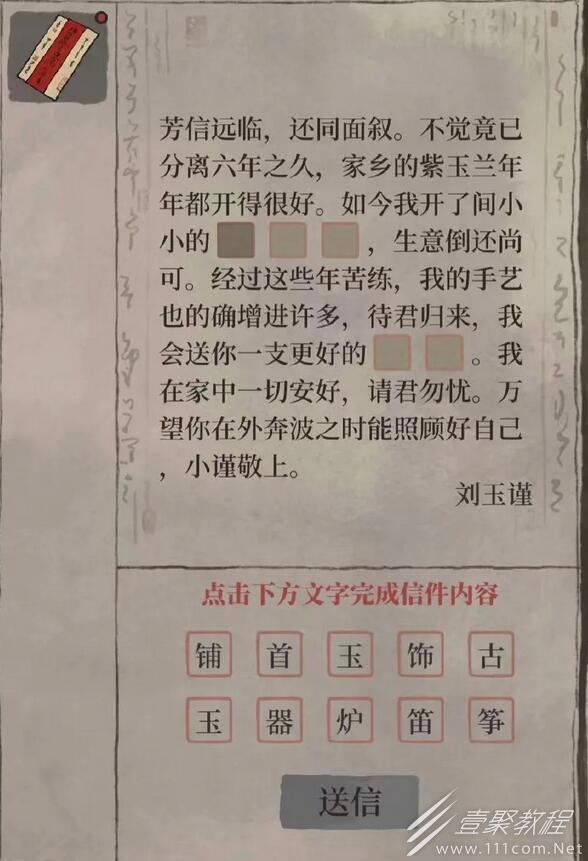 芳信远临，还同面叙。不觉竟已
分离六年之久，家乡的紫玉兰年
年都开得很好。如今我开了间小
小的，生意倒还尚
可。经过这些年苦练，我的手艺
也的确增进许多，待君归来，我
会送你一支更好的。我
在家中一切安好，请君勿忧。万
望你在外奔波之时能照顾好自己
，小谨敬上。
刘玉谨
点击下方文字完成信件内容
铺 首 玉 饰 古
玉 器 炉 笛 筝
送信
壹聚教程
www.111com.Net